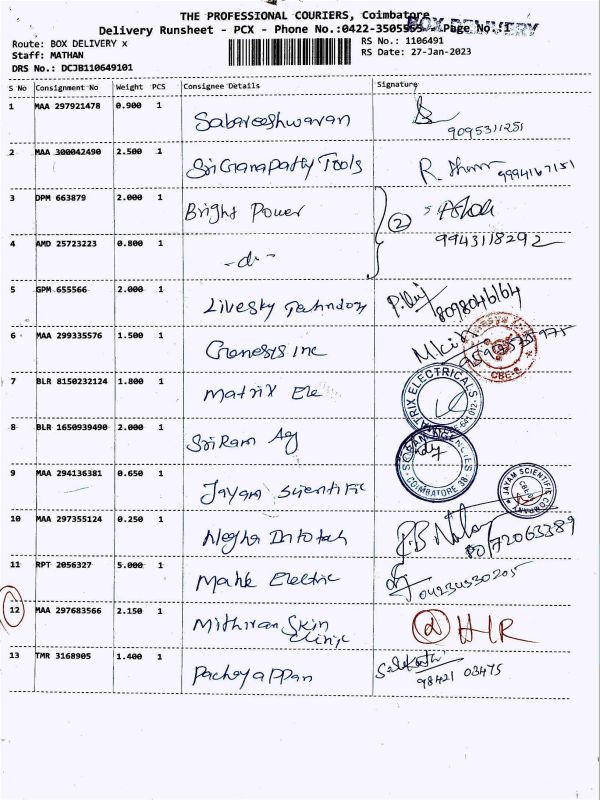 THE PROFESSIONAL COURIERS, Coimbatore
BOX DELIVERY
Delivery Runsheet - PCX - Phone No.:0422-3505555 Page No.:1
Route: BOX DELIVERY x RS No.: 1106491
Staff: MATHAN RS Date: 27-Jan-2023
DRS No.: DCJB110649101
S No Consignment No Weight PCS Consignee Details Signature
1 MAA 297921478 0.900 1 Sabareeshwaran
9095311251
2 MAA 300042490 2.500 1 Sri Ganapathy Tools R 9994167151
3 DPM 663879 2.000 1 Bright Power 2 Ashok
9943118292
4 AMD 25723223 0.800 1 -do-
5 GPM 655566 2.000 1 Livesky Technology 8098046164
6 MAA 299335576 1.500 1 Genesis inc
CBE-6
7 BLR 8150232124 1.800 1 Matrix Ele MATRIX ELECTRICALS
8 BLR 1650939490 2.000 1 Sri Ram Ag COIMBATORE
9 MAA 294136381 0.650 1 Jayam Scientific JAYAM SCIENTIFIC COMPANY
10 MAA 297355124 0.250 1
11 RPT 2056327 5.000 1 Mahe Electric 04234530205
12 MAA 297683566 2.150 1 Mithiran Skin Clinic HIR
13 TMR 3168905 1.400 1 Pachayappan
98421 03475